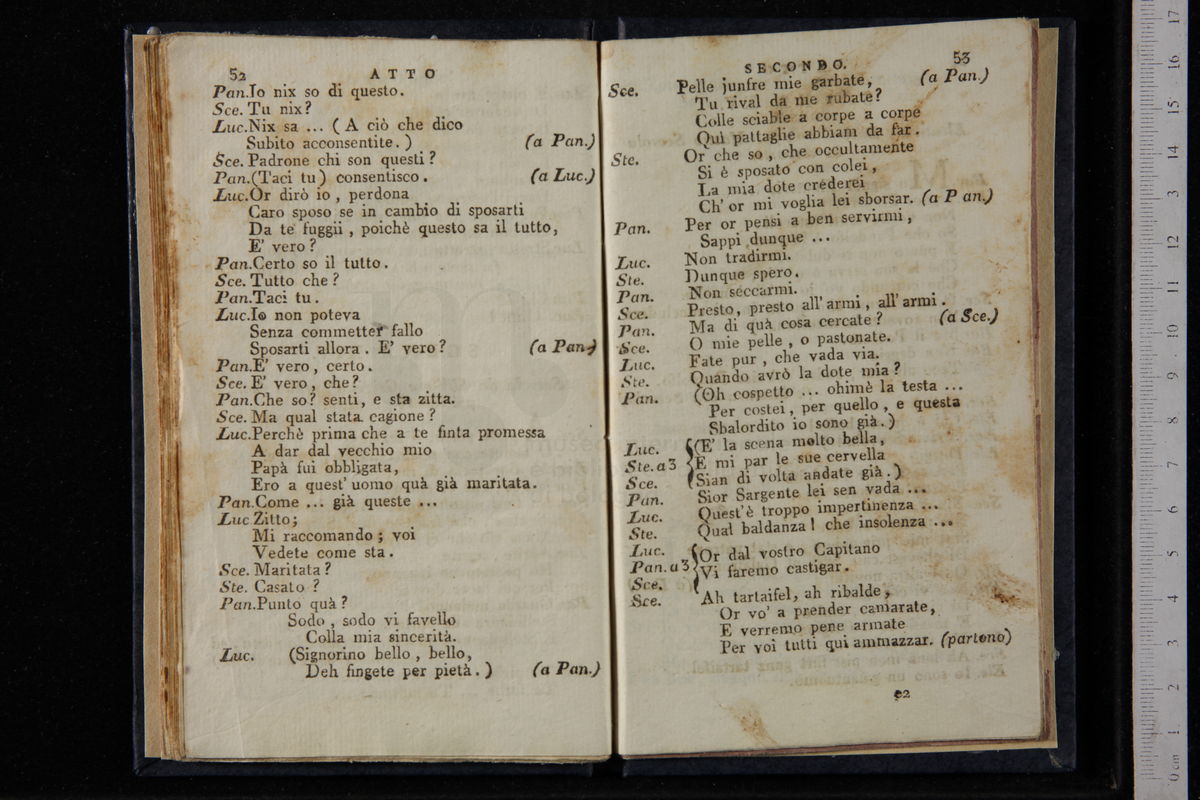 52
ATTO
Pan.Io nix so di questo.
Sce. Tu nix?
Luc.Nix sa ... ( A ciò che dico
Subito acconsentite. ) (a Pan.)
Sce. Padrone chi son questi?
Pan.(Taci tu) consentisco. (a Luc.)
Luc.Or dirò io, perdona
Caro sposo se in cambio di sposarti
Da te fuggii, poichè questo sa il tutto,
E' vero?
Pan.Certo so il tutto.
Sce. Tutto che?
Pan.Taci tu.
Luc.Io non poteva
Senza commetter fallo
Sposarti allora. E' vero? (a Pan.)
Pan.E' vero, certo.
Sce. E' vero, che?
Pan.Che so? senti, e sta zitta.
Sce. Ma qual stata cagione?
Luc.Perchè prima che a te finta promessa
A dar dal vecchio mio
Papà fui obbligata,
Ero a quest' uomo quà già maritata.
Pan.Come ... già queste ...
Luc Zitto;
Mi raccomando; voi
Vedete come sta.
Sce. Maritata?
Ste. Casato?
Pan.Punto quà?
Sodo, sodo vi favello
Colla mia sincerità.
Luc. (Signorino bello, bello,
Deh fingete per pietà.) (a Pan.)
SECONDO.
53
Sce. Pelle junfre mie garbate, (a Pan.)
Tu rival da me rubate?
Colle sciable a corpe a corpe
Quì pattaglie abbiam da far.
Ste. Or che so, che occultamente
Si è sposato con colei,
La mia dote crederei
Ch' or mi voglia lei sborsar. (a P an.)
Pan. Per or pensi a ben servirmi,
Sappi dunque ...
Luc. Non tradirmi.
Ste. Dunque spero.
Pan. Non seccarmi.
Sce. Presto, presto all' armi, all' armi.
Pan. Ma di quà cosa cercate? (a Sce.)
Sce. O mie pelle, o pastonate.
Luc. Fate pur, che vada via.
Ste. Quando avrò la dote mia?
Pan. (Oh cospetto ... ohimè la testa ...
Per costei, per quello, e questa
Sbalordito io sono già.)
Luc. (E' la scena molto bella,
Ste.a3 E mi par le sue cervella
Sce. Sian di volta andate già.)
Pan. Sior Sargente lei sen vada ...
Luc. Quest'è troppo impertinenza ...
Ste. Qual baldanza! che insolenza ...
Luc. Or dal vostro Capitano
Pan.a3 Vi faremo castigar.
Sce.
Sce. Ah tartaifel, ah ribalde,
Or vo' a prender camarate,
E verremo pene armate
Per voi tutti qui ammazzar. (partono)
e2